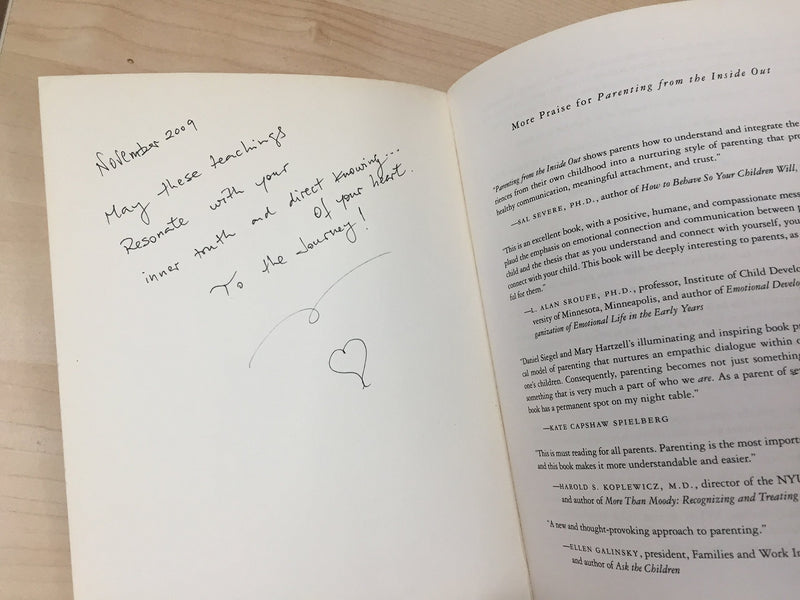 November 2009
May these teachings
Resonate with your
inner truth and direct knowing...
of your heart.
To the Journey!
More Praise for Parenting from the Inside Out
"Parenting from the Inside Out shows parents how to understand and integrate the
riences from their own childhood into a nurturing style of parenting that pro
healthy communication, meaningful attachment, and trust."
—SAL SEVERE, PH.D., author of How to Behave So Your Children Will,
"This is an excellent book, with a positive, humane, and compassionate mess
plaud the emphasis on emotional connection and communication between p
child and the thesis that as you understand and connect with yourself, you
connect with your child. This book will be deeply interesting to parents, as
ful for them."
—L. ALAN SROUFE, PH.D., professor, Institute of Child Develo
versity of Minnesota, Minneapolis, and author of Emotional Develo
ganization of Emotional Life in the Early Years
"Daniel Siegel and Mary Hartzell's illuminating and inspiring book p
cal model of parenting that nurtures an empathic dialogue within o
one's children. Consequently, parenting becomes not just somethin
something that is very much a part of who we are. As a parent of se
book has a permanent spot on my night table."
—KATE CAPSHAW SPIELBERG
"This is must reading for all parents. Parenting is the most import
and this book makes it more understandable and easier."
—HAROLD S. KOPLEWICZ, M.D., director of the NYU
and author of More Than Moody: Recognizing and Treating
"A new and thought-provoking approach to parenting."
—ELLEN GALINSKY, president, Families and Work In
and author of Ask the Children